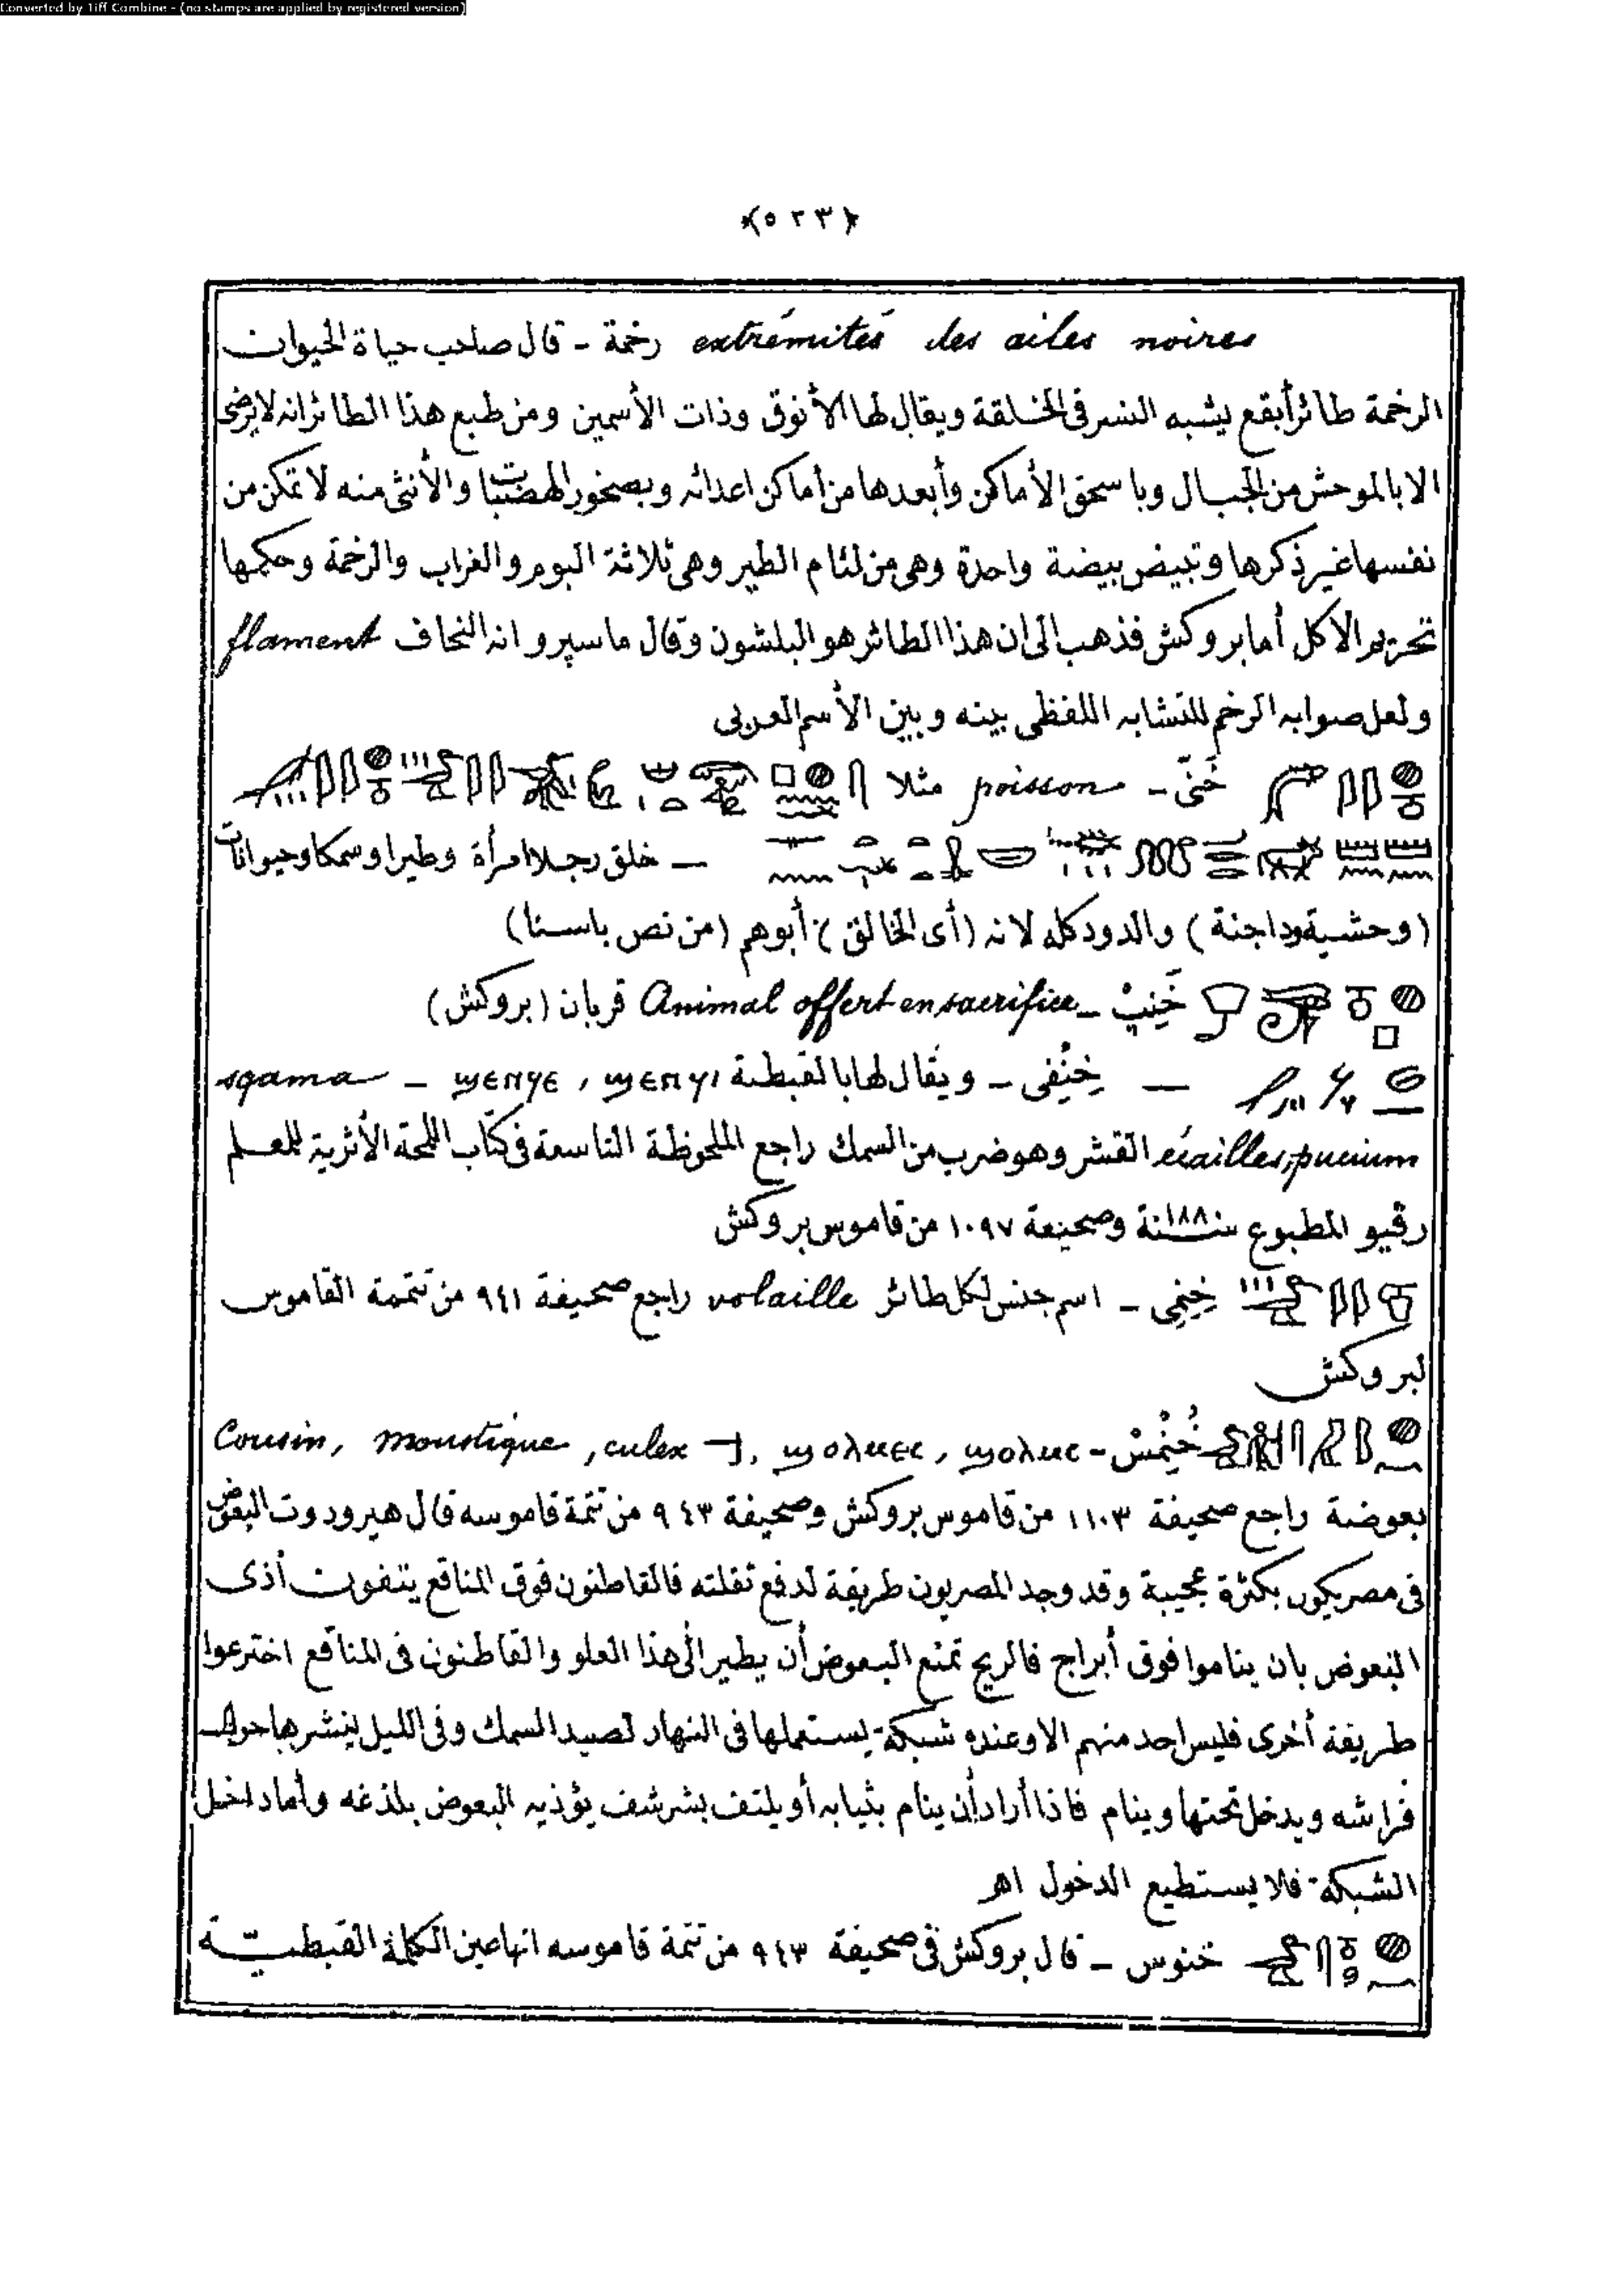 Converted by Tiff Combine - (no stamps are applied by registered version)
﴿٥٢٣﴾
extrémités des ailes noires رخمة - قال صاحب حياة الحيوان
الرخمة طائر أبقع يشبه النسر فى الخلقة ويقال لها الأنوق وذات الأسمين ومن طبع هذا الطائر انه لا يرضى
الا بالموحش من الجبال وباسحق الأماكن وأبعدها من أماكن اعدائه وبصخور الهضبات والأنثى منه لا تمكن من
نفسها غير ذكرها وتبيض بيضة واحدة وهى من لئام الطير وهى ثلاثة البوم والغراب والرخمة وحكمها
تحريم الاكل أما بروكش فذهب الى ان هذا الطائر هو البلشون وقال ماسپرو انه النحاف flament
ولعل صوابه الرخم للتشابه اللفظى بينه وبين الأسم العربى
خَنّى - poisson مثلا
— خلق رجلا امرأة وطيرا وسمكا وحيوانات
(وحشية وداجنة) والدود كله لانه (أى الخالق) أبوهم (من نص باسنا)
خَنِبْ - Animal offert en sacrifice قربان (بروكش)
— خِنُفى - ويقال لها بالقبطية ϣⲉⲛϥⲓ , ϣⲉⲛϥⲉ - sqama
écailles, pucium القشر وهو ضرب من السمك راجع الملحوظة التاسعة فى كتاب اللمحة الأثرية للمعلم
رڤيو المطبوع سنة ١٨٨ وصحيفة ١٠٩٧ من قاموس بروكش
خِنِمى - اسم جنس لكل طائر volaille راجع صحيفة ٩٤١ من تتمة القاموس
لبروكش
خُنِمْسْ - ϣⲟⲗⲙⲥ , ϣⲟⲗⲙⲉⲥ , culex , moustique , Cousin
بعوضة راجع صحيفة ١١٠٣ من قاموس بروكش وصحيفة ٩٤٣ من تتمة قاموسه قال هيرودوت البعوض
فى مصر يكون بكثرة عجيبة وقد وجد المصريون طريقة لدفع ثقلته فالقاطنون فوق المناقع يتفون أذى
البعوض بان يناموا فوق أبراج فالريح تمنع البعوض أن يطير الى هذا العلو والقاطنون فى المناقع اخترعوا
طريقة أخرى فليس احد منهم الا وعنده شبكة يستعملها فى النهار لصيد السمك وفى الليل ينشرها حول
فراشه ويدخل تحتها وينام فاذا أراد أن ينام بثيابه أو يلتف بشرشف يؤذيه البعوض بلذغه وأما داخل
الشبكة فلا يستطيع الدخول اهـ
خنوس - قال بروكش فى صحيفة ٩٤٣ من تتمة قاموسه انها عين الكلمة القبطيـة